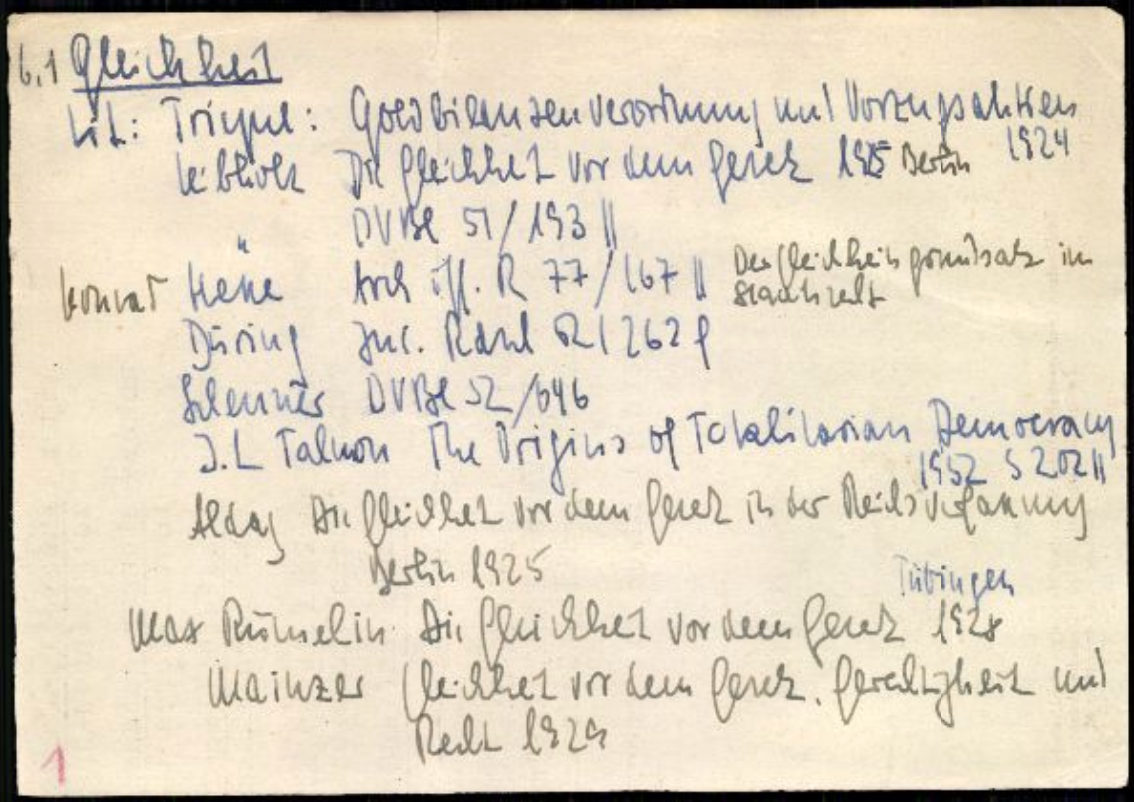 6.1 Gleichheit
Lit: Triepel: Goldbilanzenverordnung und Vorzugsaktien
1924
Leibholz Die Gleichheit vor dem Gesetz 1925 Berlin
" DVBl 51/193 ||
Konrad Hesse Arch öff. R 77/167 || Der Gleichheitsgrundsatz im
Staatsrecht
Düring Jur. Rdsch 52/262 f
DVBl 52/646
J.L Talmon The Origins of Totalitarian Democracy
1952 S 202 ||
Aldag Die Gleichheit vor dem Gesetz in der Reichsverfassung
Berlin 1925
Tübingen
Max Rümelin Die Gleichheit vor dem Gesetz 1928
Mainzer Gleichheit vor dem Gesetz. Gerechtigkeit und
Recht 1929
1